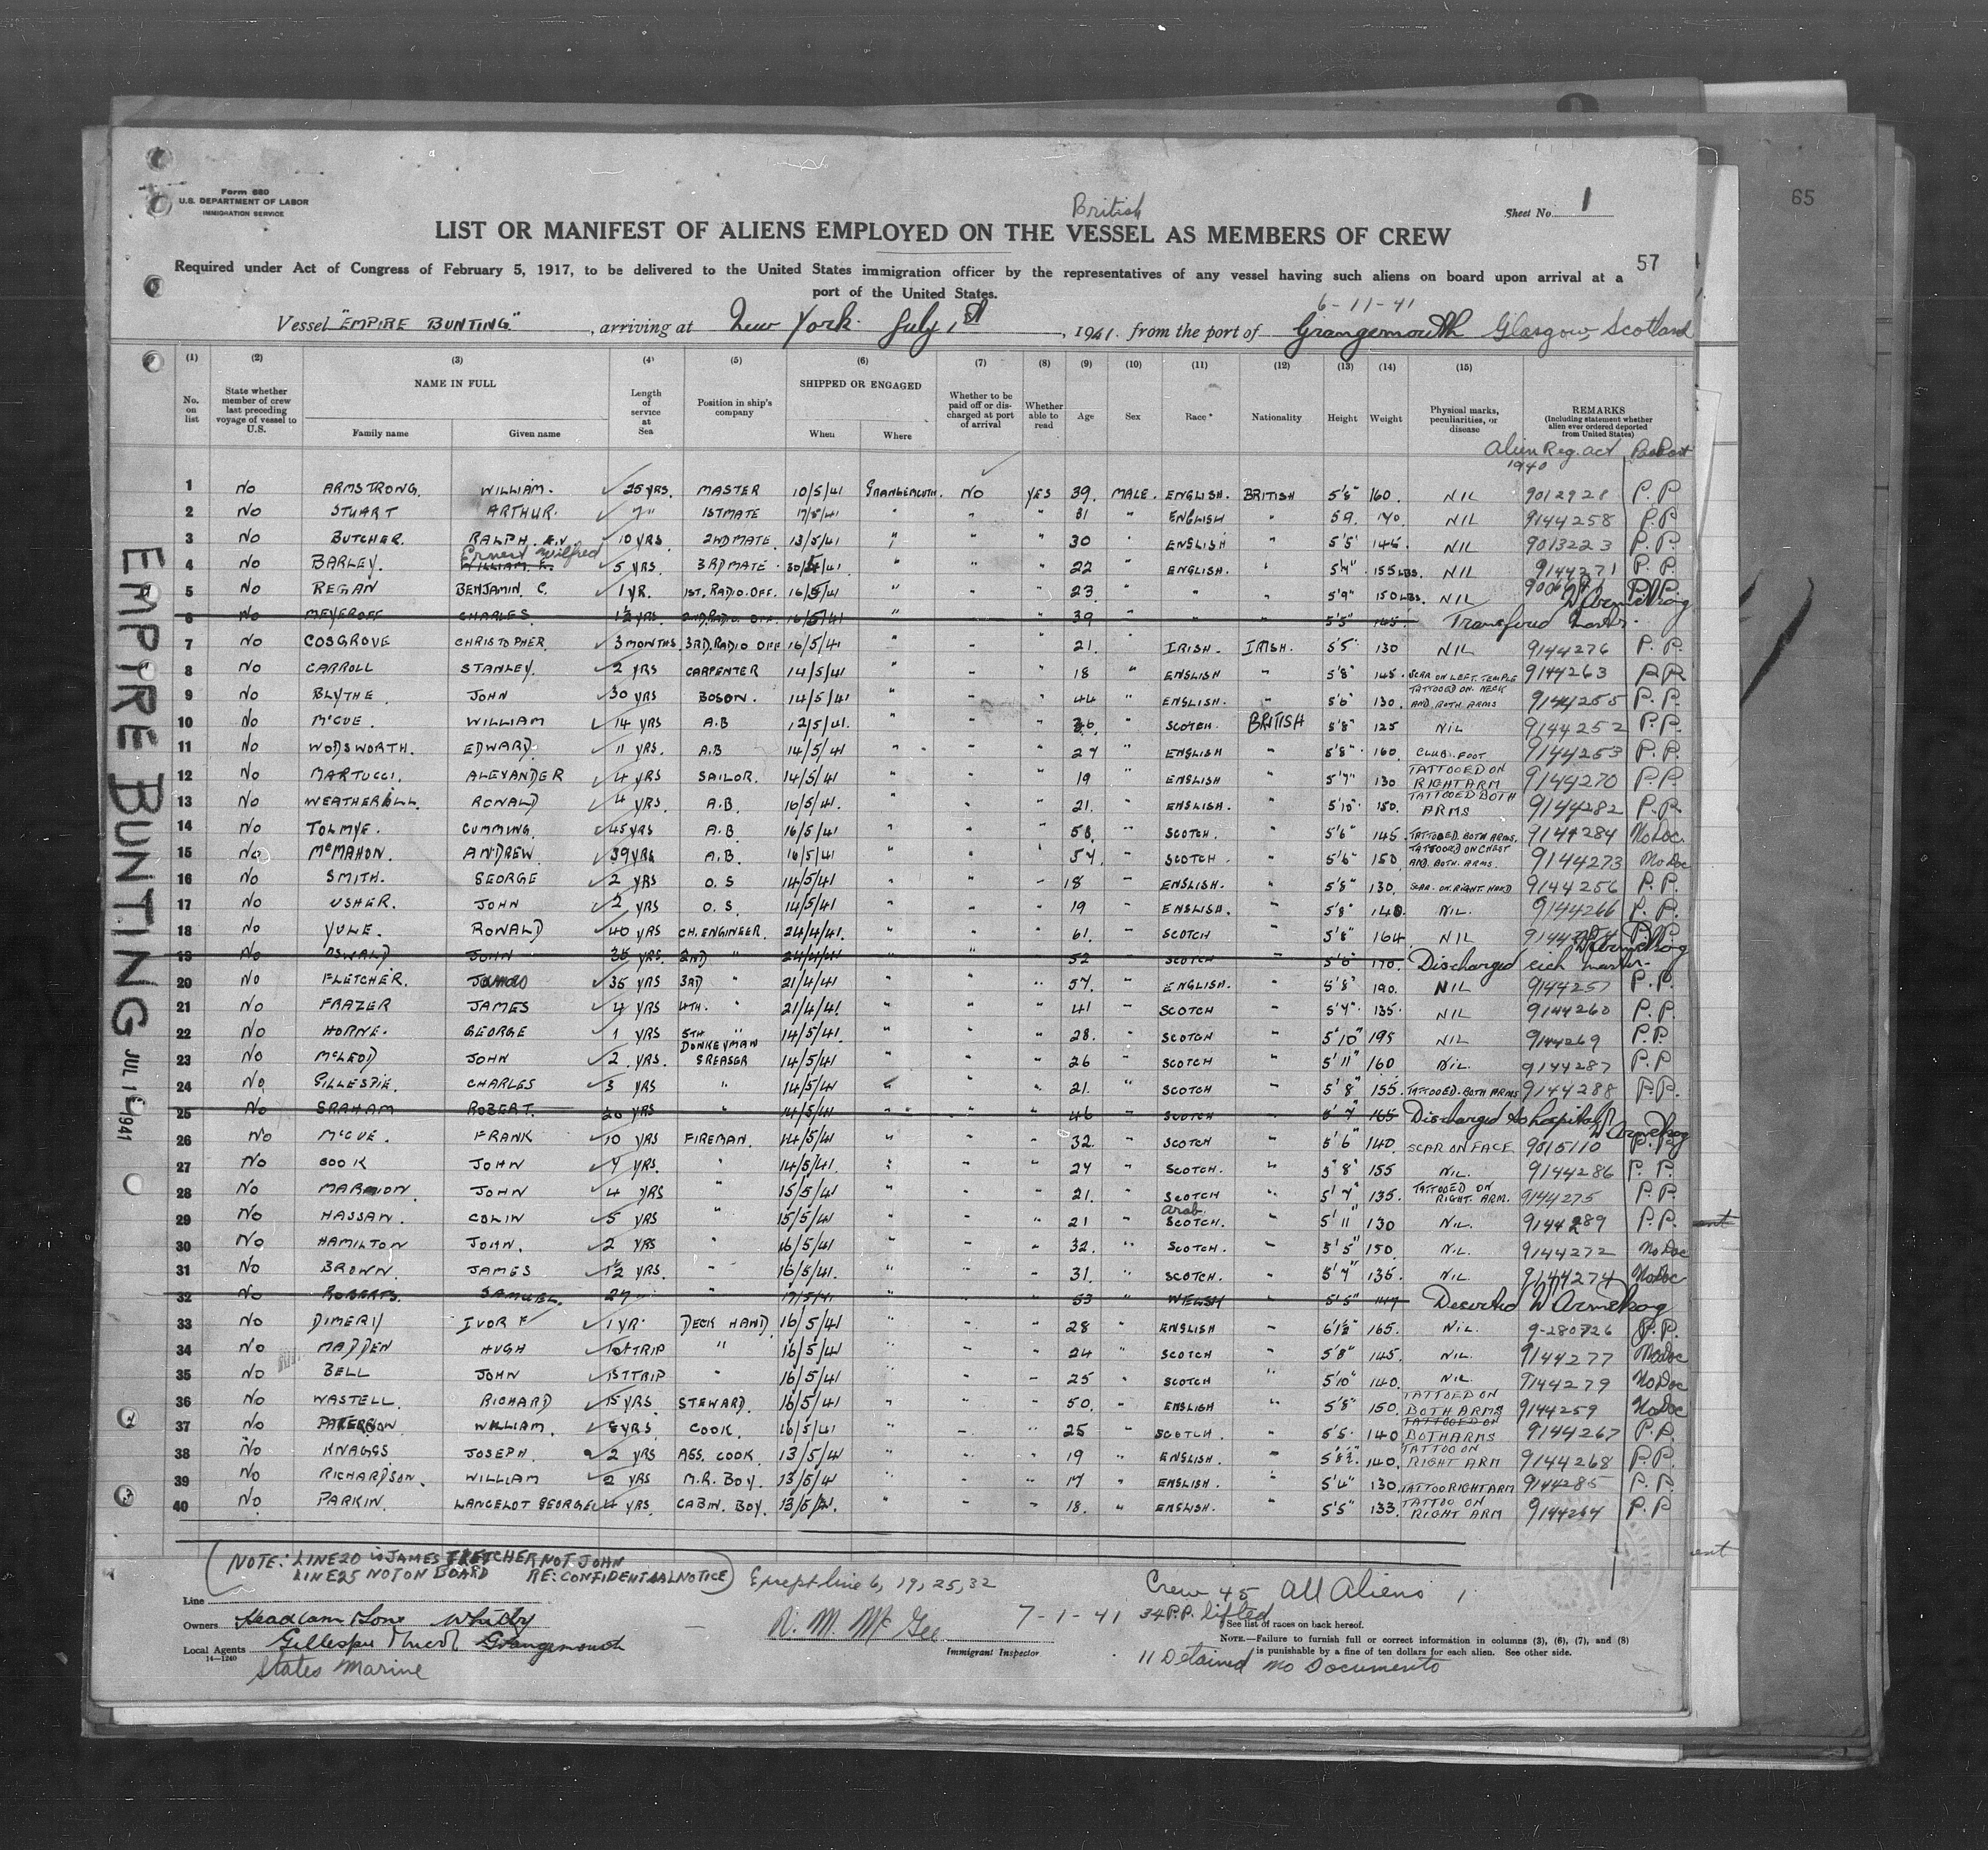 65
Form 680
U.S. DEPARTMENT OF LABOR
IMMIGRATION SERVICE
Sheet No. 1
British
LIST OR MANIFEST OF ALIENS EMPLOYED ON THE VESSEL AS MEMBERS OF CREW
57
Required under Act of Congress of February 5, 1917, to be delivered to the United States immigration officer by the representatives of any vessel having such aliens on board upon arrival at a
port of the United States.
6-11-41
Vessel "EMPIRE BUNTING", arriving at New York July 1st, 1941. from the port of Grangemouth Glasgow Scotland
(1) (2) (3) (4) (5) (6) (7) (8) (9) (10) (11) (12) (13) (14) (15)
No. on list State whether member of crew last preceding voyage of vessel to U.S. NAME IN FULL Family name Given name Length of service at Sea Position in ship's company SHIPPED OR ENGAGED When Where Whether to be paid off or discharged at port of arrival Whether able to read Age Sex Race* Nationality Height Weight Physical marks, peculiarities, or disease REMARKS (Including statement whether alien ever ordered deported from United States)
Alien Reg. act 1940
1 No ARMSTRONG. WILLIAM. 25 YRS. MASTER 10/5/41 GRANGEMOUTH. NO YES 39. MALE. ENGLISH. BRITISH 5'8" 160. NIL 9012928 P.P
2 No STUART ARTHUR. 7 " 1ST MATE 17/5/41 " " " 31 " ENGLISH " 5 9. 170. NIL 9144258 P.P
3 No BUTCHER. RALPH. E.V. 10 YRS. 2ND MATE. 13/5/41 " " " 30 " ENGLISH " 5'5" 146. NIL 9013223 P.P.
4 No BARLEY. WILLIAM. F. Ernest Wilfred 5 YRS. 3RD MATE. 30/5/41. " " " 22 " ENGLISH. " 5'7" 155 LBS. NIL 9144271 P.P.
5 No REGAN BENJAMIN C. 1 YR. 1ST. RADIO. OFF. 16/5/41 " " " 23 " " " 5'9" 150 LBS. NIL
6 No MEYEROFF CHARLES 1½ YRS. 2ND. RADIO OFF. 16/5/41 " " " 39 " " " 5'5" 145. W Armstrong Master.
7 No COSGROVE CHRISTOPHER 3 MONTHS. 3RD. RADIO OFF 16/5/41 " " " 21. IRISH. IRISH. 5'5" 130 NIL 9144276 P.P.
8 No CARROLL STANLEY. 2 YRS CARPENTER 14/5/41 " " " 18 " ENGLISH " 5'8" 145. SCAR ON LEFT. TEMPLE 9144263 P.P.
9 No BLYTHE JOHN 30 YRS BOSON. 14/5/41 " " " 44 " ENGLISH. " 5'6" 130. TATTOOED ON. NECK AND BOTH ARMS 9144255 P.P.
10 No McCUE. WILLIAM 14 YRS A.B 12/5/41. " " " 36 " SCOTCH. BRITISH 5'8" 125 NIL 9144252 P.P.
11 No WODSWORTH. EDWARD. 11 YRS. A.B 14/5/41 " " " 27 " ENGLISH " 5'8" 160 CLUB. FOOT 9144253 P.P.
12 No MARTUCCI. ALEXANDER 4 YRS SAILOR. 14/5/41 " " " 19 " ENGLISH " 5'7" 130 TATTOOED ON RIGHT ARM 9144270 P.P.
13 No WEATHERILL. RONALD 4 YRS. A.B. 16/5/41. " " " 21. " ENGLISH. " 5'10" 150. TATTOOED BOTH ARMS 9144282 P.P.
14 No TOLMYE. CUMMING. 45 YRS A.B 16/5/41 " " " 58. " SCOTCH. " 5'6" 145. TATTOOED. BOTH ARMS. 9144284 No Doc.
15 No McMAHON. ANDREW. 39 YRS A.B. 16/5/41 " " " 57. " SCOTCH " 5'6" 150 TATTOOED ON CHEST AND. BOTH. ARMS. 9144273 No Doc
16 No SMITH. GEORGE 2 YRS O.S 14/5/41 " " " 18 " ENGLISH. " 5'8" 130. SCAR. ON. RIGHT. HAND 9144256 P.P.
17 No USHER. JOHN 2 YRS O.S. 14/5/41 " " " 19 " ENGLISH. " 5'8" 140. NIL. 9144266 P.P.
18 No YULE. RONALD 40 YRS CH. ENGINEER. 24/4/41. " " " 61. " SCOTCH " 5'8" 164. NIL
19 No OSWALD JOHN 35 YRS. 2ND " 24/4/41 " " " 52 SCOTCH " 5'6" 170. Discharged sick W Armstrong master.
20 No FLETCHER. JAMES 35 YRS 3RD " 21/4/41 " " " 57. ENGLISH. " 5'8" 190. NIL 9144257 P.P.
21 No FRAZER JAMES 4 YRS 4TH. " 21/4/41 " " " 41 SCOTCH " 5'7" 135. NIL 9144260 P.P.
22 No HORNE. GEORGE 1 YRS 5TH " 14/5/41. " " " 28. " SCOTCH " 5'10" 195 NIL 9144269 P.P.
23 No McLEOD JOHN 2. YRS. DONKEYMAN GREASER 14/5/41 " " " 26 " SCOTCH " 5'11" 160 NIL. 9144287 P.P
24 No GILLESPIE. CHARLES 3 YRS " 14/5/41 " " " 21. " SCOTCH " 5'8" 155. TATTOOED. BOTH ARMS 9144288 P.P.
25 No GRAHAM ROBERT. 20 YRS " 14/5/41 " " " 46 " SCOTCH " 5'7" 165 Discharged to hospital W Armstrong
26 No McCUE. FRANK 10 YRS FIREMAN. 14/5/41 " " " 32. " SCOTCH " 5'6" 140. SCAR ON FACE 9015110 P.P.
27 No COOK JOHN 7 YRS. " 14/5/41. " " " 27 " SCOTCH. " 5'8" 155 NIL. 9144286 P.P.
28 No MARMION. JOHN 4 YRS " 15/5/41 " " " 21. " SCOTCH " 5'7" 135. TATTOOED ON RIGHT. ARM. 9144275 P.P.
29 No HASSAN. COLIN 5 YRS " 15/5/41 " " " 21 " Arab SCOTCH. " 5'11" 130 NIL. 9144289 P.P.
30 No HAMILTON JOHN. 2 YRS " 16/5/41 " " " 32. " SCOTCH. " 5'5" 150 NIL. 9144272 No Doc
31 No BROWN. JAMES 1½ YRS. " 16/5/41. " " " 31. " SCOTCH. " 5'7" 135. NIL. 9144274 No Doc
32 No ROBERTS. SAMUEL. 27 " " 17/5/41 " " " 53 WELSH " 5'5" 147 Deserted W Armstrong
33 No DIMERY IVOR F 1 YR. DECK HAND. 16/5/41 " " " 28 " ENGLISH " 6'1½" 165. NIL. 9-280726 P.P.
34 No MADDEN HUGH 1ST TRIP " 16/5/41 " " " 24 " SCOTCH " 5'8" 145. NIL. 9144277 No Doc
35 No BELL JOHN 1ST TRIP " 16/5/41 " " " 25 " SCOTCH " 5'10" 140. NIL. 9144279 No Doc
36 No WASTELL. RICHARD 15 YRS STEWARD. 16/5/41 " " " 50. " ENGLISH " 5'8" 150. TATTOED ON BOTH ARMS 9144259 No Doc
37 No PATERSON WILLIAM. 8 YRS COOK. 16/5/41 " " " 25 SCOTCH. " 5'5. 140 TATTOOED ON BOTH ARMS 9144267 P.P.
38 No KNAGGS JOSEPH. 2 YRS ASS. COOK. 13/5/41 " " " 19 " ENGLISH. " 5'8½". 140. TATTOO ON RIGHT ARM 9144268 P.P.
39 No RICHARDSON. WILLIAM 2 YRS M.R. BOY. 13/5/41 " " " 17 " ENGLISH. " 5'4" 130. TATTOO RIGHT ARM 9144285 P.P.
40 No PARKIN. LANCELOT GEORGE 4 YRS. CABIN. BOY. 13/5/41. " " " 18. " ENGLISH. " 5'5" 133. TATTOO ON RIGHT ARM 9144264 P.P
EMPIRE BUNTING JUL 1 1941
(NOTE: LINE 20 is JAMES FLETCHER NOT JOHN
LINE 25 NOT ON BOARD RE: CONFIDENTIAL NOTICE)
Except line 6, 19, 25, 32
Crew 45 All Aliens
34 P.P. lifted
Line
Owners Headlam & Sons Whitby
Local Agents Gillespie & Nicol Grangemouth
14—1240
States Marine
R. M. McGee 7-1-41
Immigrant Inspector
* See list of races on back hereof.
NOTE.—Failure to furnish full or correct information in columns (3), (6), (7), and (8)
is punishable by a fine of ten dollars for each alien. See other side.
11 Detained No Documents